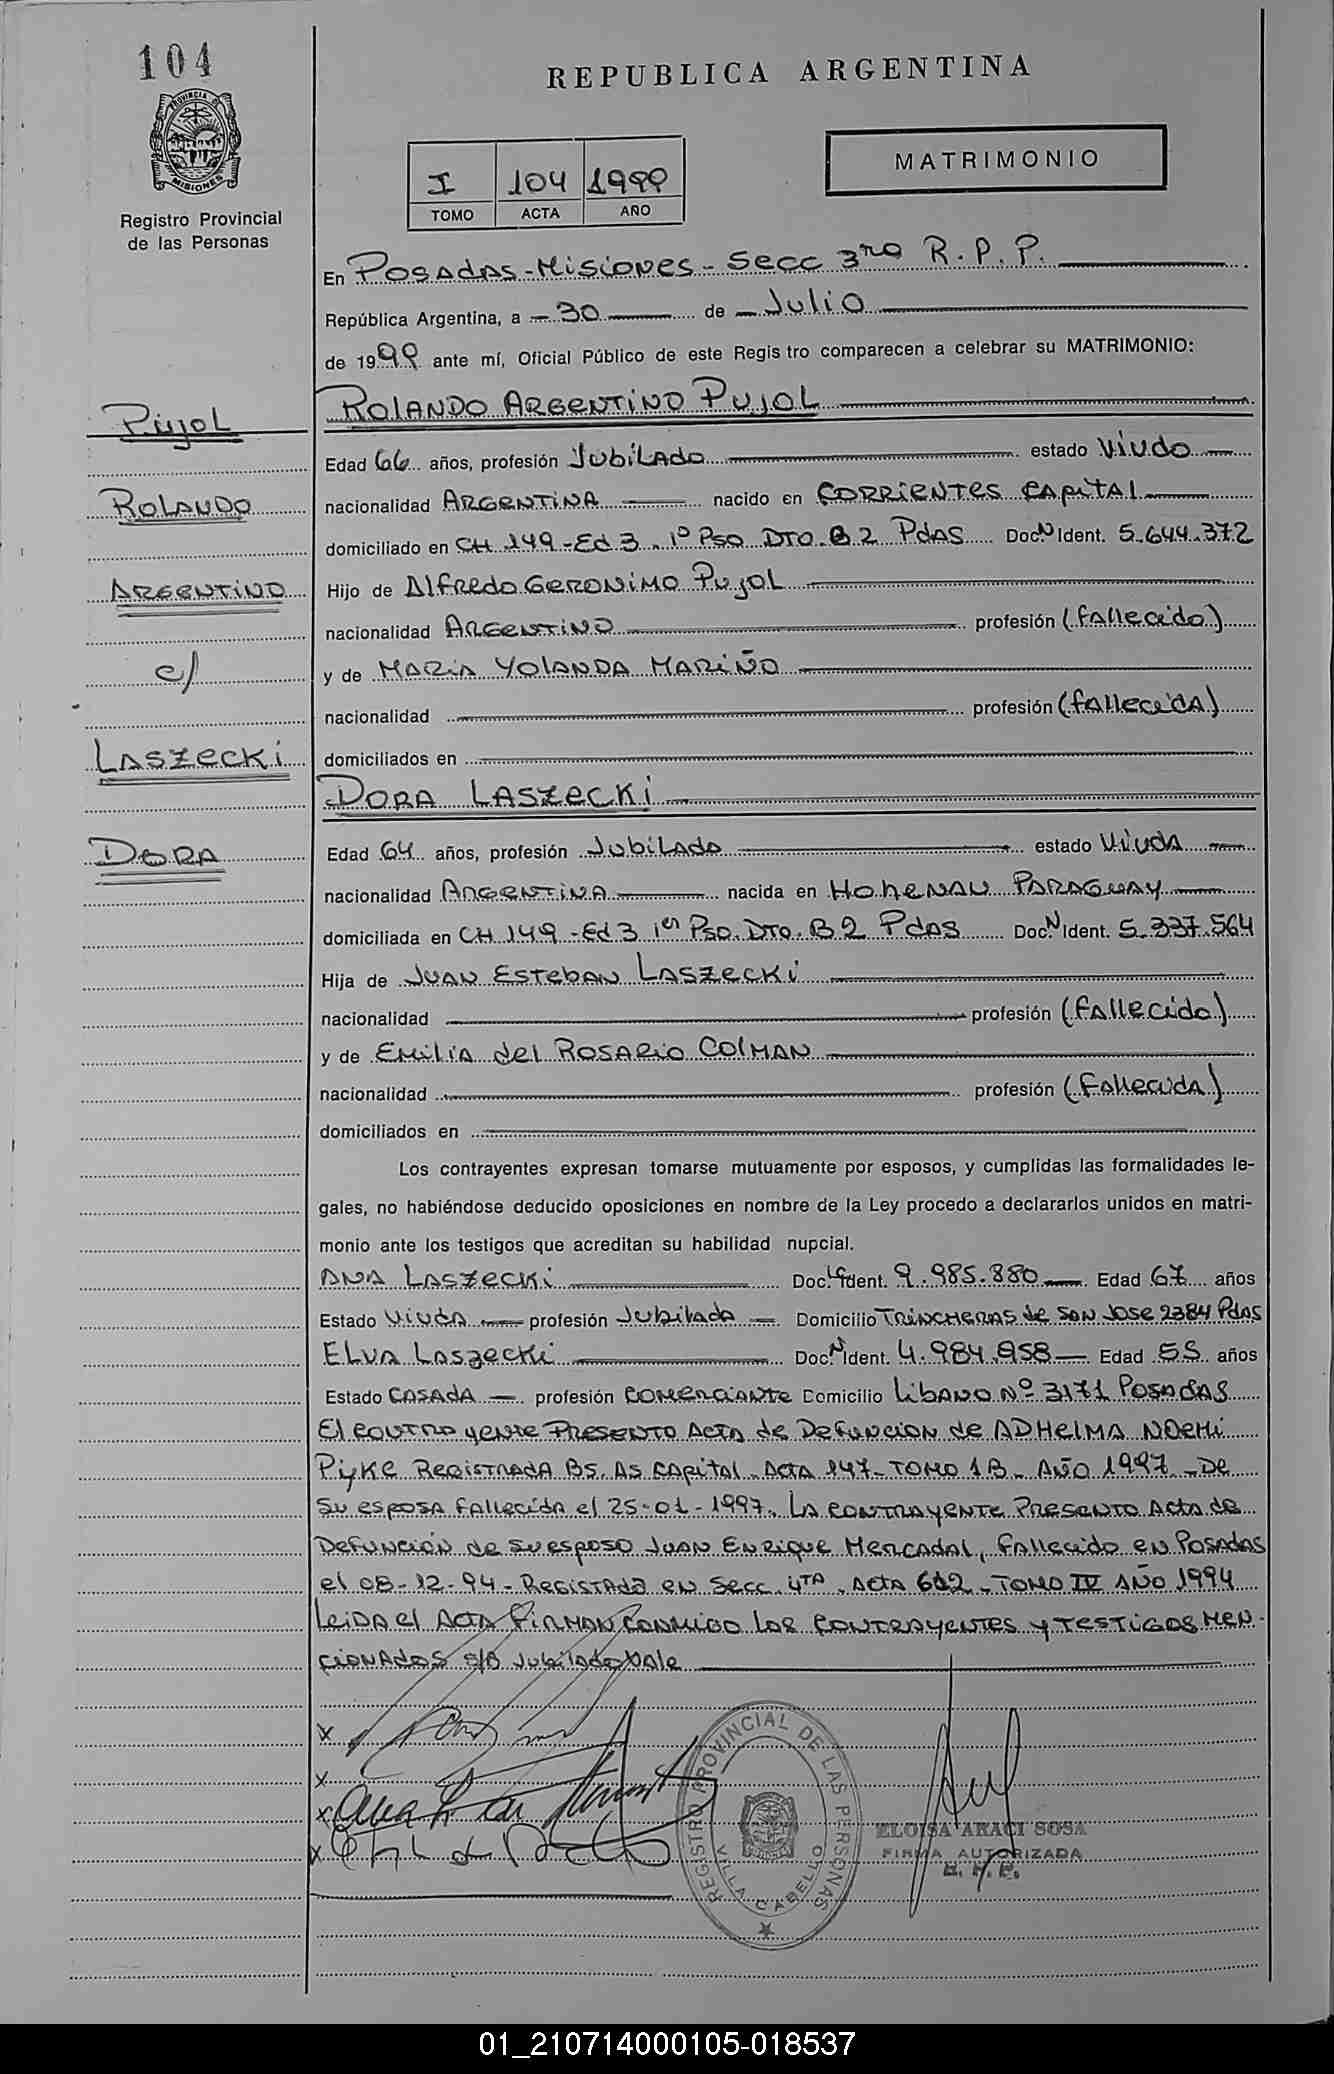 104
PROVINCIA DE
MISIONES
Registro Provincial
de las Personas
REPUBLICA ARGENTINA
MATRIMONIO
I 104 1999
TOMO ACTA AÑO
En Posadas - Misiones - Secc 3ra R.P.P.
República Argentina, a 30 de Julio
de 1999 ante mí, Oficial Público de este Registro comparecen a celebrar su MATRIMONIO:
Pujol
Rolando
Argentino
c/
Laszecki
Dora
Rolando Argentino Pujol
Edad 66 años, profesión Jubilado estado Viudo
nacionalidad Argentina nacido en Corrientes Capital
domiciliado en CH 149 - Ed 3 . 1º Pso Dto. B 2 Pdas Doc. N Ident. 5.644.372
Hijo de Alfredo Geronimo Pujol
nacionalidad Argentino profesión (fallecido)
y de Maria Yolanda Mariño
nacionalidad profesión (fallecida)
domiciliados en
Dora Laszecki
Edad 64 años, profesión Jubilado estado Viuda
nacionalidad Argentina nacida en Hohenau Paraguay
domiciliada en CH 149 - Ed 3 1er Pso. Dto. B 2 Pdas Doc. N Ident. 5.337.564
Hija de Juan Esteban Laszecki
nacionalidad profesión (fallecido)
y de Emilia del Rosario Colman
nacionalidad profesión (fallecida)
domiciliados en
Los contrayentes expresan tomarse mutuamente por esposos, y cumplidas las formalidades le-
gales, no habiéndose deducido oposiciones en nombre de la Ley procedo a declararlos unidos en matri-
monio ante los testigos que acreditan su habilidad nupcial.
Ana Laszecki Doc. LC Ident. 9.985.880 Edad 67 años
Estado Viuda profesión Jubilada Domicilio Trincheras de San Jose 2384 Pdas
Elva Laszecki Doc. N Ident. 4.984.958 Edad 55 años
Estado Casada profesión comerciante Domicilio Libano Nº 3171 Posadas
El contrayente presento Acta de Defuncion de Adhelma Noemi
Pyke Registrada Bs. As. Capital - Acta 147 - Tomo 1B - Año 1997 - De
su esposa fallecida el 25-01-1997. La contrayente presento Acta de
Defunción de su esposo Juan Enrique Mercadal, fallecido en Posadas
el 08-12-94 - Registada en Secc. 4ta . Acta 612 - Tomo IV Año 1994
Leida el Acta firman conmigo los contrayentes y testigos men-
cionados s/b Jubilado Vale
x
x
x
x
REGISTRO PROVINCIAL DE LAS PERSONAS
VILLA CABELLO
ELOISA ARACI SOSA
FIRMA AUTORIZADA
R. P. P.
01_210714000105-018537